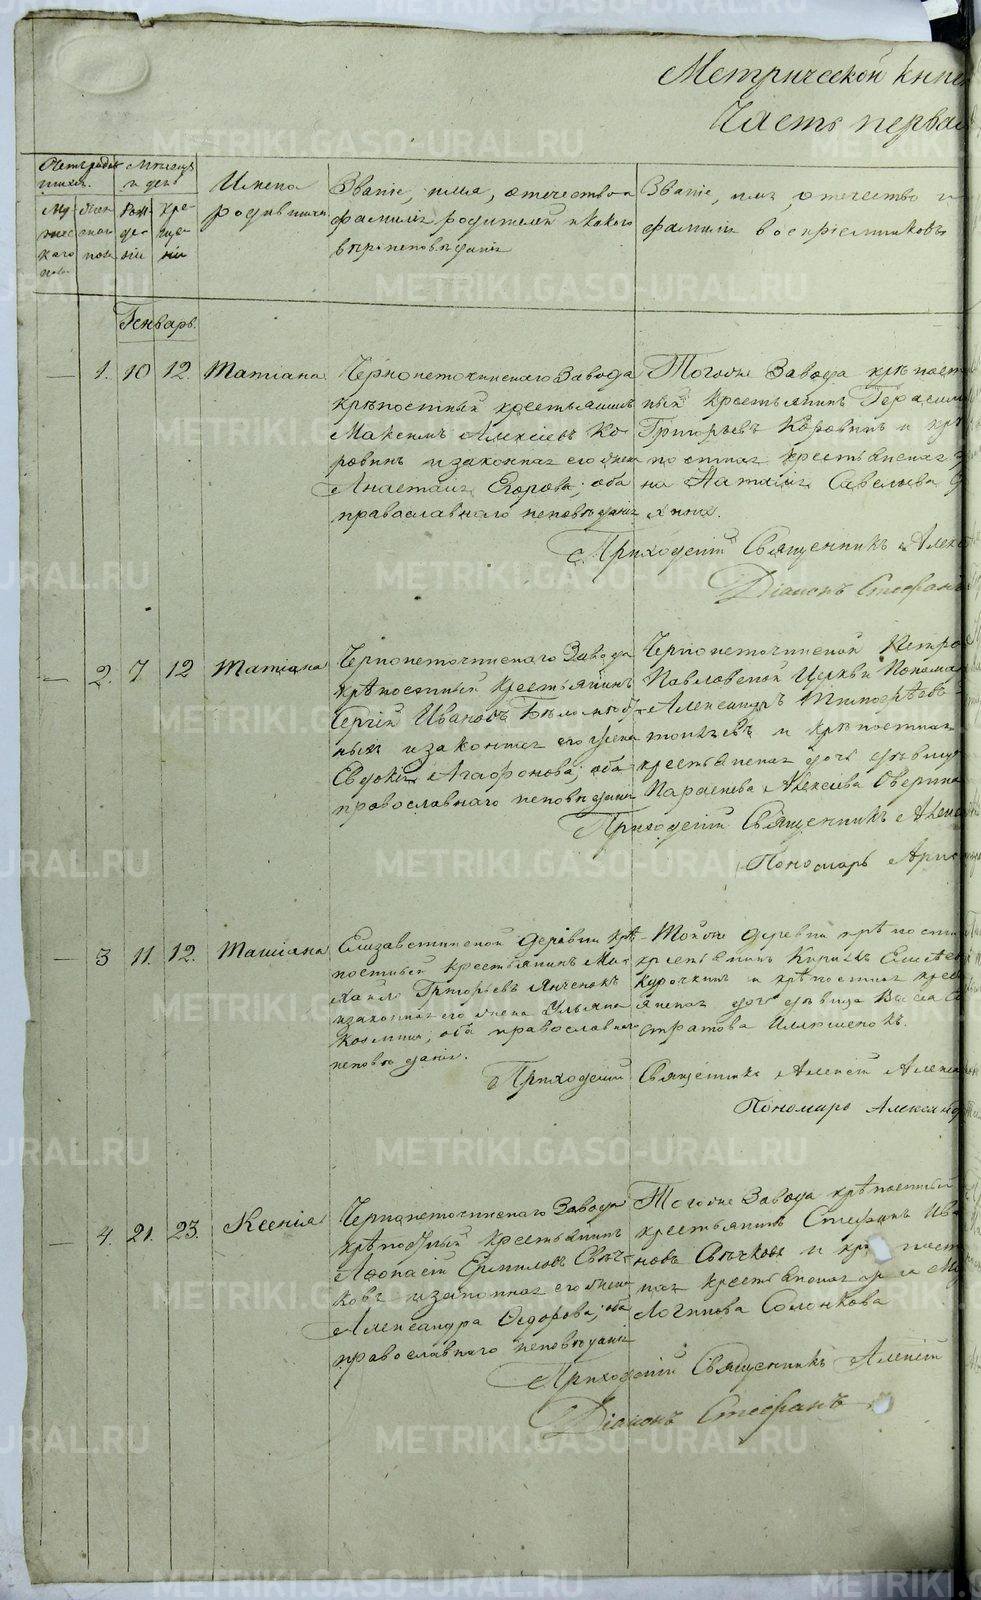 Метрической книги
Часть первая
Счетъ родившихся.
Мѣсяцъ и день
Имена родившихся
Званіе, имя, отечество и
фамилія родителей и какого
вѣроисповѣданія
Званіе, имя, отечество и
фамилія воспріемниковъ
Мужескаго пола
Женскаго пола
Рожденія
Крещенія
Генварь.
1. 10 12. Татіана
Черноисточинскаго Завода
крѣпостный крестьянинъ
Максимъ Алексѣевъ Ко
ровинъ и законная его жена
Анастасія Егорова; оба
православнаго исповѣданія
Тогоже Завода крѣпост
ный крестьянинъ Герасимъ
Григорьевъ Коровинъ и крѣ
постная крестьянская
на Наталія Савельева
Приходскій Священникъ Алекс
Діаконъ Стефанъ
2. 7 12 Татіана
Черноисточинскаго Завода
крѣпостный крестьянинъ
Сергій Ивановъ
ныхъ и законная его жена
Евдокія Агафонова; оба
православнаго исповѣданія
Черноисточинской Петро
Павловской Церкви Пономарь
Александръ
и крѣпостная
крестьянская дочь дѣвица
Параскева Алексѣева Оверина
Приходскій Священникъ Алекс
Пономарь
3 11. 12. Татіана
Елизаветинской деревни крѣ
постный крестьянинъ Ми
хаилъ Григорьевъ Янченокъ
и законная его жена Ульяна
Козмина, оба православнаго
исповѣданія.
Тойже деревни крѣпостн
крестьянинъ Кирилъ
Курочкинъ и крѣпостная крес
янская дочь дѣвица Васса
стратова
Приходскій Священникъ Алексій Алекса
Пономарь Александ
4. 21. 23. Ксенія
Черноисточинскаго Завода
крѣпостный крестьянинъ
Афонасій Ермиловъ Свѣч
ковъ и законная его жена
Александра Ѳедорова; оба
православнаго исповѣданія
Тогоже Завода крѣпостный
крестьянинъ Стефанъ Ива
новъ Свѣчковъ и крѣпост
ная крестьянская
Логинова Солонкова
Приходскій Священникъ Алексій
Діаконъ Стефанъ
METRIKI.GASO-URAL.RU